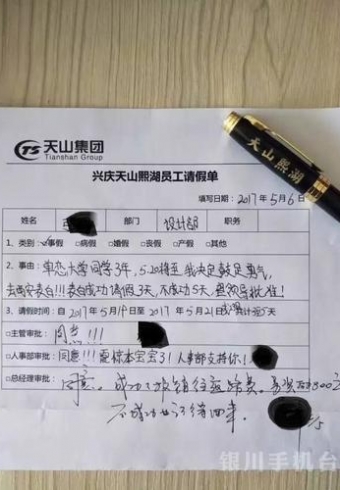 天山集团
Tianshan Group
天山熙湖
兴庆天山熙湖员工请假单
填写日期：2017年5月6日
姓名 部门 设计部 职务
1、类别：☑事假 □病假 □婚假 □丧假 □产假 □其他
2、事由：单恋大学同学3年，5.20将至 我决定鼓足勇气，
去西安表白!!!表白成功请假3天，不成功5天 望领导批准！
3、请假时间：自2017年5月19日至2017年5月21日 共计 5天
□主管审批：同意!!!
□人事部审批：同意!!! 本宝宝31 人事部支持你！
□总经理审批： 同意。成功了报销往返路费。
不成功
银川手机台